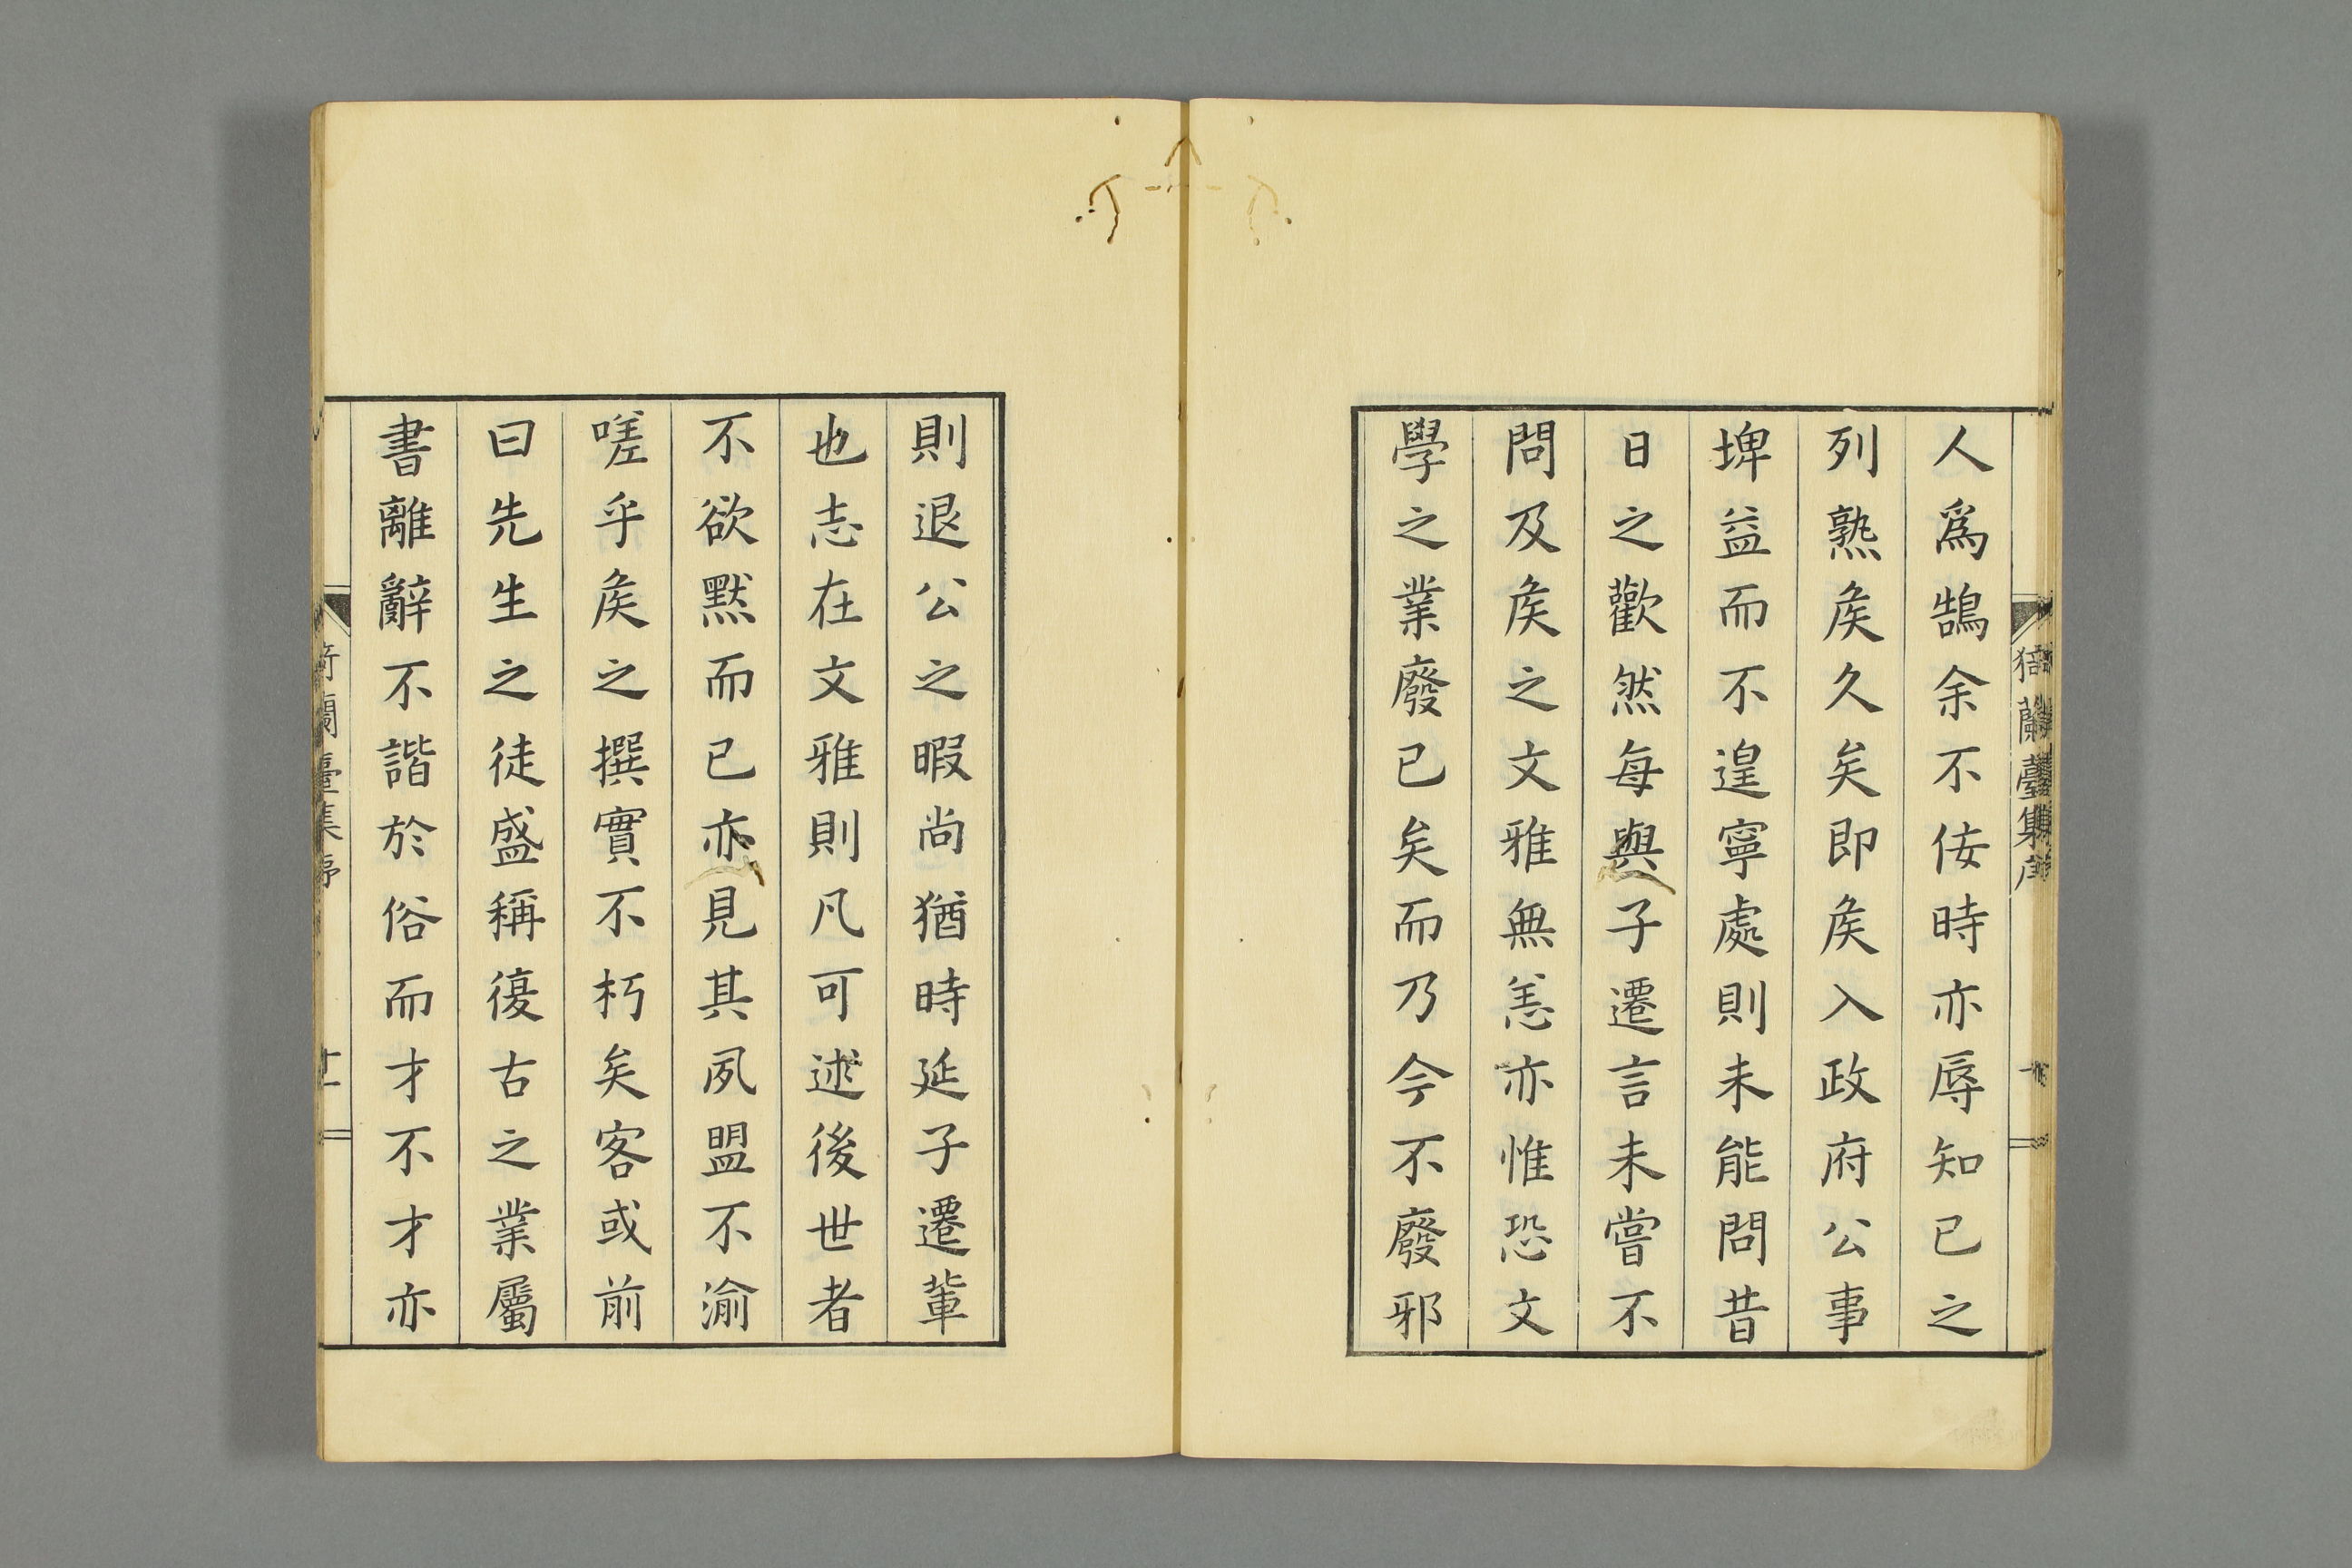 人爲鵠余不佞時亦辱知已之
列熟矦久矣即矦入政府公事
埤益而不遑寧處則未能問昔
日之歡然每與子遷言未嘗不
問及矦之文雅無恙亦惟恐文
學之業廢已矣而乃今不廢邪
則退公之暇尚猶時延子遷輩
也志在文雅則凡可述後世者
不欲默而已亦見其夙盟不渝
嗟乎矦之撰實不朽矣客或前
曰先生之徒盛稱復古之業屬
書離辭不諧於俗而才不才亦
猗蘭臺集序
蘭臺集序